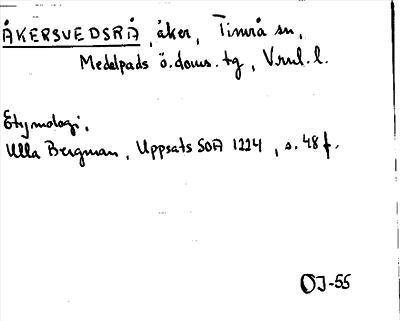 ÅKERSVEDSRÅ, åker, Timrå sn,
Medelpads ö. doms. tg, V.nrl. l.
Etymologi,
Ulla Bergman, Uppsats SOÅ 1224, s. 48 f.
OJ-55